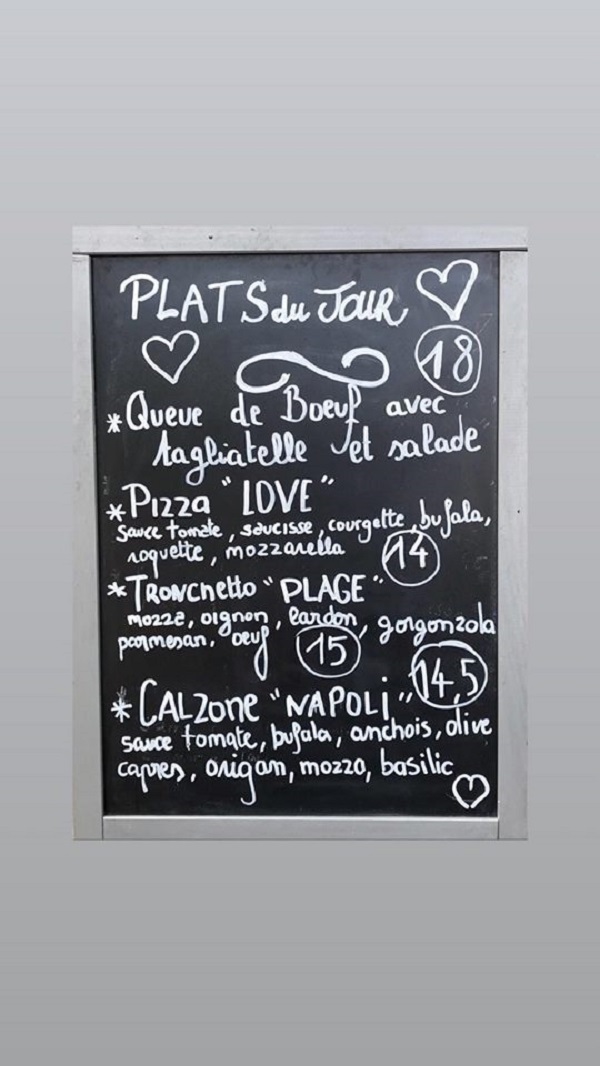 PLATS du JOUR
18
*Queue de Boeuf avec
tagliatelle et salade
*Pizza "LOVE"
Sauce tomate, saucisse, courgette, bufala,
roquette, mozzarella 14
*TRONCHETTO "PLAGE"
mozza, oignon, lardon, gorgonzola
parmesan, oeuf 15
14,5
*CALZONE "NAPOLI"
sauce tomate, bufala, anchois, olive
capres, origan, mozza, basilic